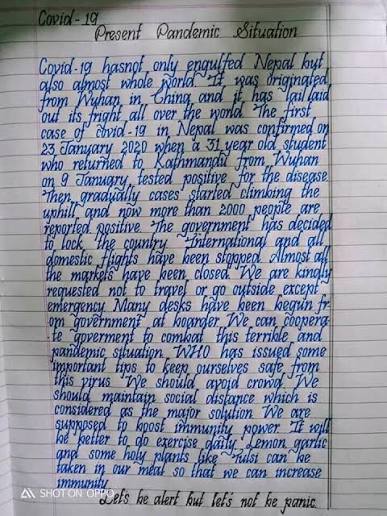 Covid-19
Present Pandemic Situation
Covid-19 hasnot only engulfed Nepal but
also almost whole world. It was originated
from Wuhan in China and it has laid
out its fright all over the world. The first
case of covid-19 in Nepal was confirmed on
23 January 2020 when a 31 year old student
who returned to Kathmandu from Wuhan
on 9 January, tested positive for the disease.
Then gradually cases started climbing the
uphill and now more than 2000 people are
reported positive. The government has decided
to lock the country. International and all
domestic flights have been stopped. Almost all
the markets have been closed. We are kindly
requested not to travel or go outside except
emergency. Many desks have been begun fr
om government at boarder. We can coopera-
te goverment to combat this terrible and
pandemic situation. WHO has issued some
important tips to keep ourselves safe from
this virus. We should avoid crowd. We
should maintain social distance which is
considered as the major solution. We are
supposed to boost immunity power. It will
be better to do exercise daily. Lemon, garlic
and some holy plants like Tulsi can be
taken in our meal so that we can increase
immunity.
Let's be alert but let's not be panic.
SHOT ON OPPO